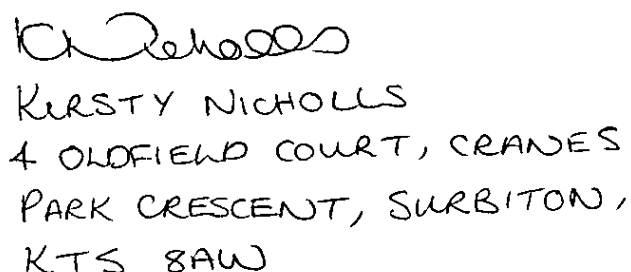 K Nicholls
KIRSTY NICHOLLS
4 OLDFIELD COURT, CRANES
PARK CRESCENT, SURBITON,
KT5 8AW